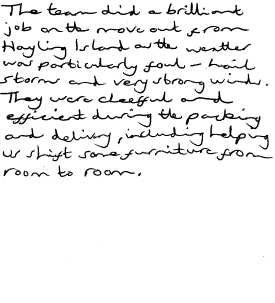 The team did a brilliant
job on the move out from
Hayling Island as the weather
was particularly foul - hail
storms and very strong winds.
They were cheerful and
efficient during the packing
and delivery, including helping
us shift some furniture from
room to room.